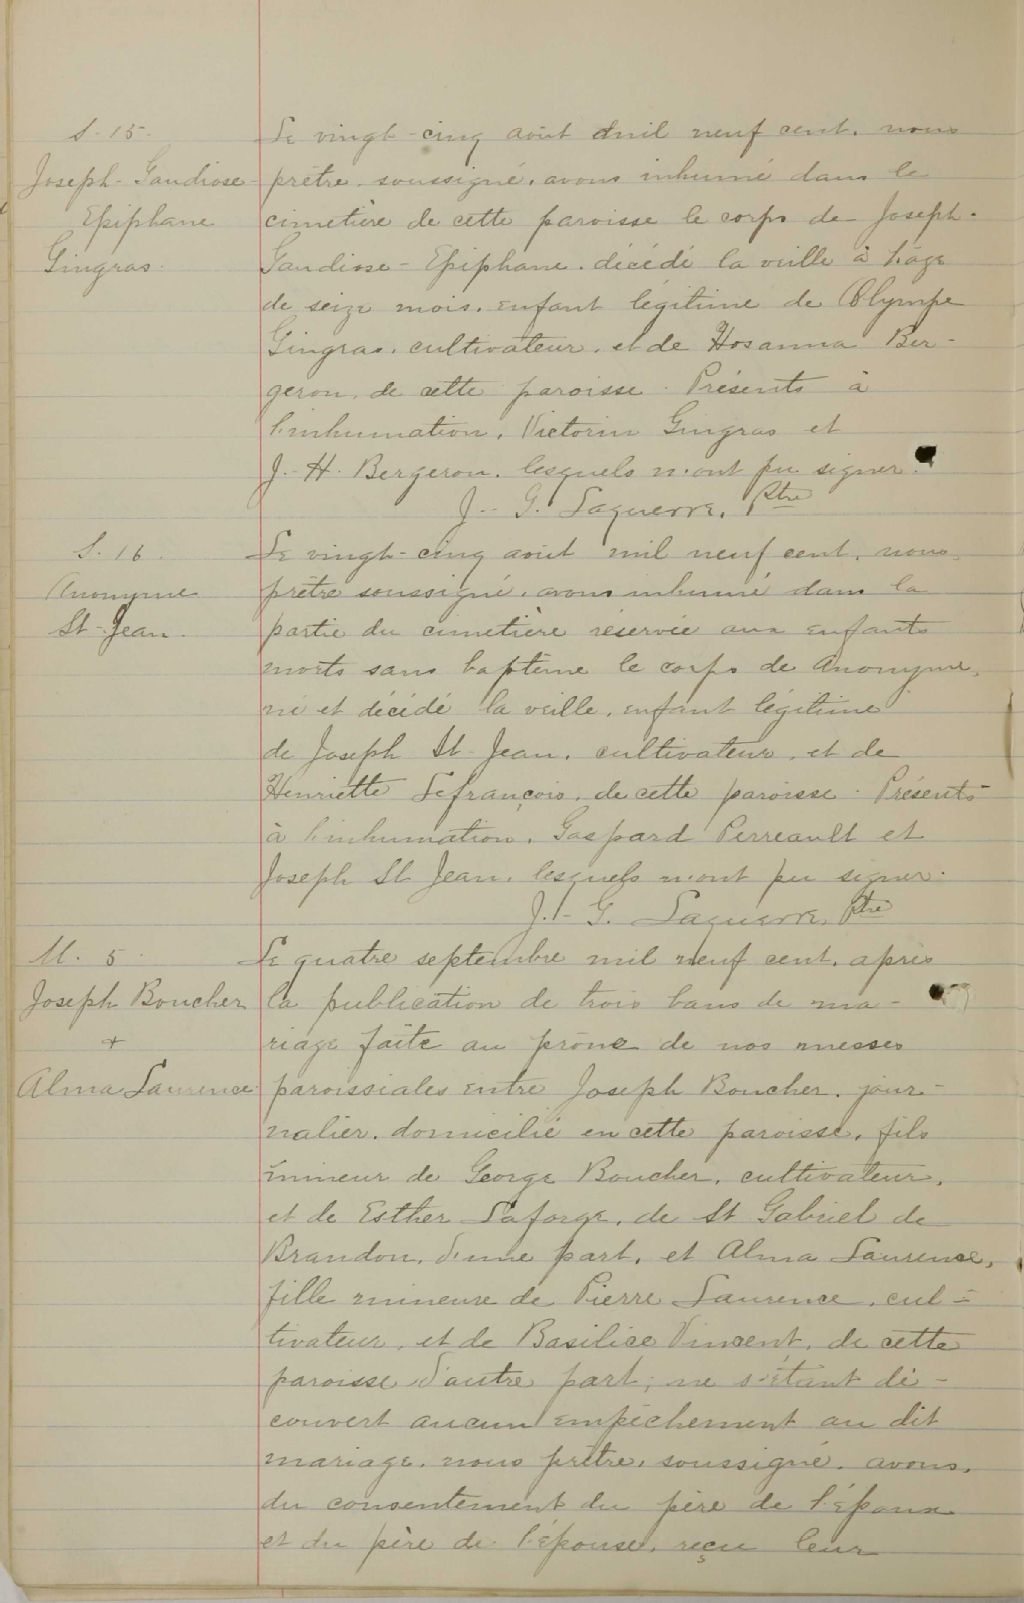 S. 15.
Joseph-Gaudiose-
Epiphane
Gingras.
Le vingt-cinq août mil neuf cent, nous
prêtre soussigné, avons inhumé dans le
cimetière de cette paroisse le corps de Joseph-
Gaudiose-Epiphane, décédé la veille à l'âge
de seize mois, enfant légitime de Olympe
Gingras, cultivateur, et de Hosanna Ber-
geron, de cette paroisse. Présents à
l'inhumation, Victorin Gingras et
J.-H. Bergeron, lesquels n'ont pu signer.
J.-G. Laguerre, Ptre
S. 16.
Anonyme
St-Jean.
Le vingt-cinq août mil neuf cent, nous
prêtre soussigné, avons inhumé dans la
partie du cimetière réservée aux enfants
morts sans baptême le corps de Anonyme,
né et décédé la veille, enfant légitime
de Joseph St-Jean, cultivateur, et de
Henriette Lefrançois, de cette paroisse. Présents
à l'inhumation, Gaspard Perreault et
Joseph St Jean, lesquels n'ont pu signer.
J.-G. Laguerre, Ptre
M. 5.
Joseph Boucher
+
Alma Laurence
Le quatre septembre mil neuf cent, après
la publication de trois bans de ma-
riage faite au prône de nos messes
paroissiales entre Joseph Boucher, jour-
nalier, domicilié en cette paroisse, fils
mineur de George Boucher, cultivateur,
et de Esther Laforge, de St Gabriel de
Brandon, d'une part, et Alma Laurence,
fille mineure de Pierre Laurence, cul-
tivateur, et de Basilice Vincent, de cette
paroisse d'autre part; ne s'étant dé-
couvert aucun empêchement au dit
mariage, nous prêtre, soussigné, avons,
du consentement du père de l'époux
et du père de l'épouse, reçu leur